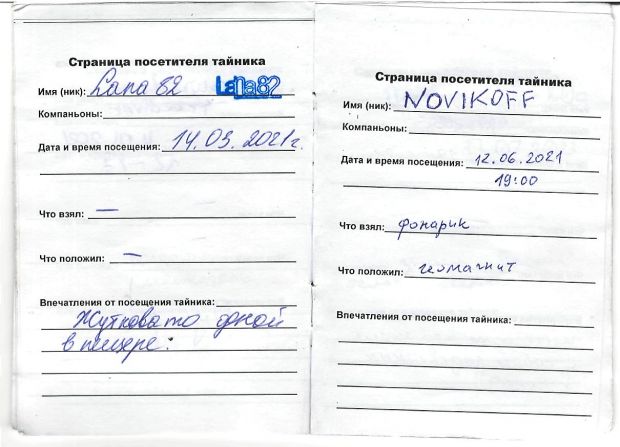 Страница посетителя тайника
Имя (ник): Lana 82 Lana82
Компаньоны:
Дата и время посещения: 14.03.2021г.
Что взял: —
Что положил: —
Впечатления от посещения тайника:
Жутковато одной
в пещере.
Страница посетителя тайника
Имя (ник): NOVIKOFF
Компаньоны:
Дата и время посещения: 12.06.2021
19:00
Что взял: фонарик
Что положил: геомагнит
Впечатления от посещения тайника: